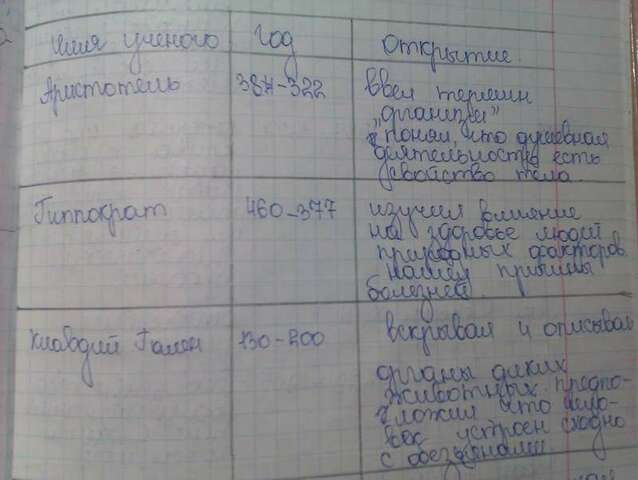 Имя ученого Год Открытие
Аристотель 384-322 Ввел термин
„организм"
понял, что душевная
деятельность есть
свойство тела
Гиппократ 460-377 изучил влияние
на здоровье людей
природных факторов
нашел причины
болезней.
Клавдий Гален 130-200 вскрывал и описывал
органы диких
животных. предпо-
ложил что чело-
век устроен сходно
с обезьянами